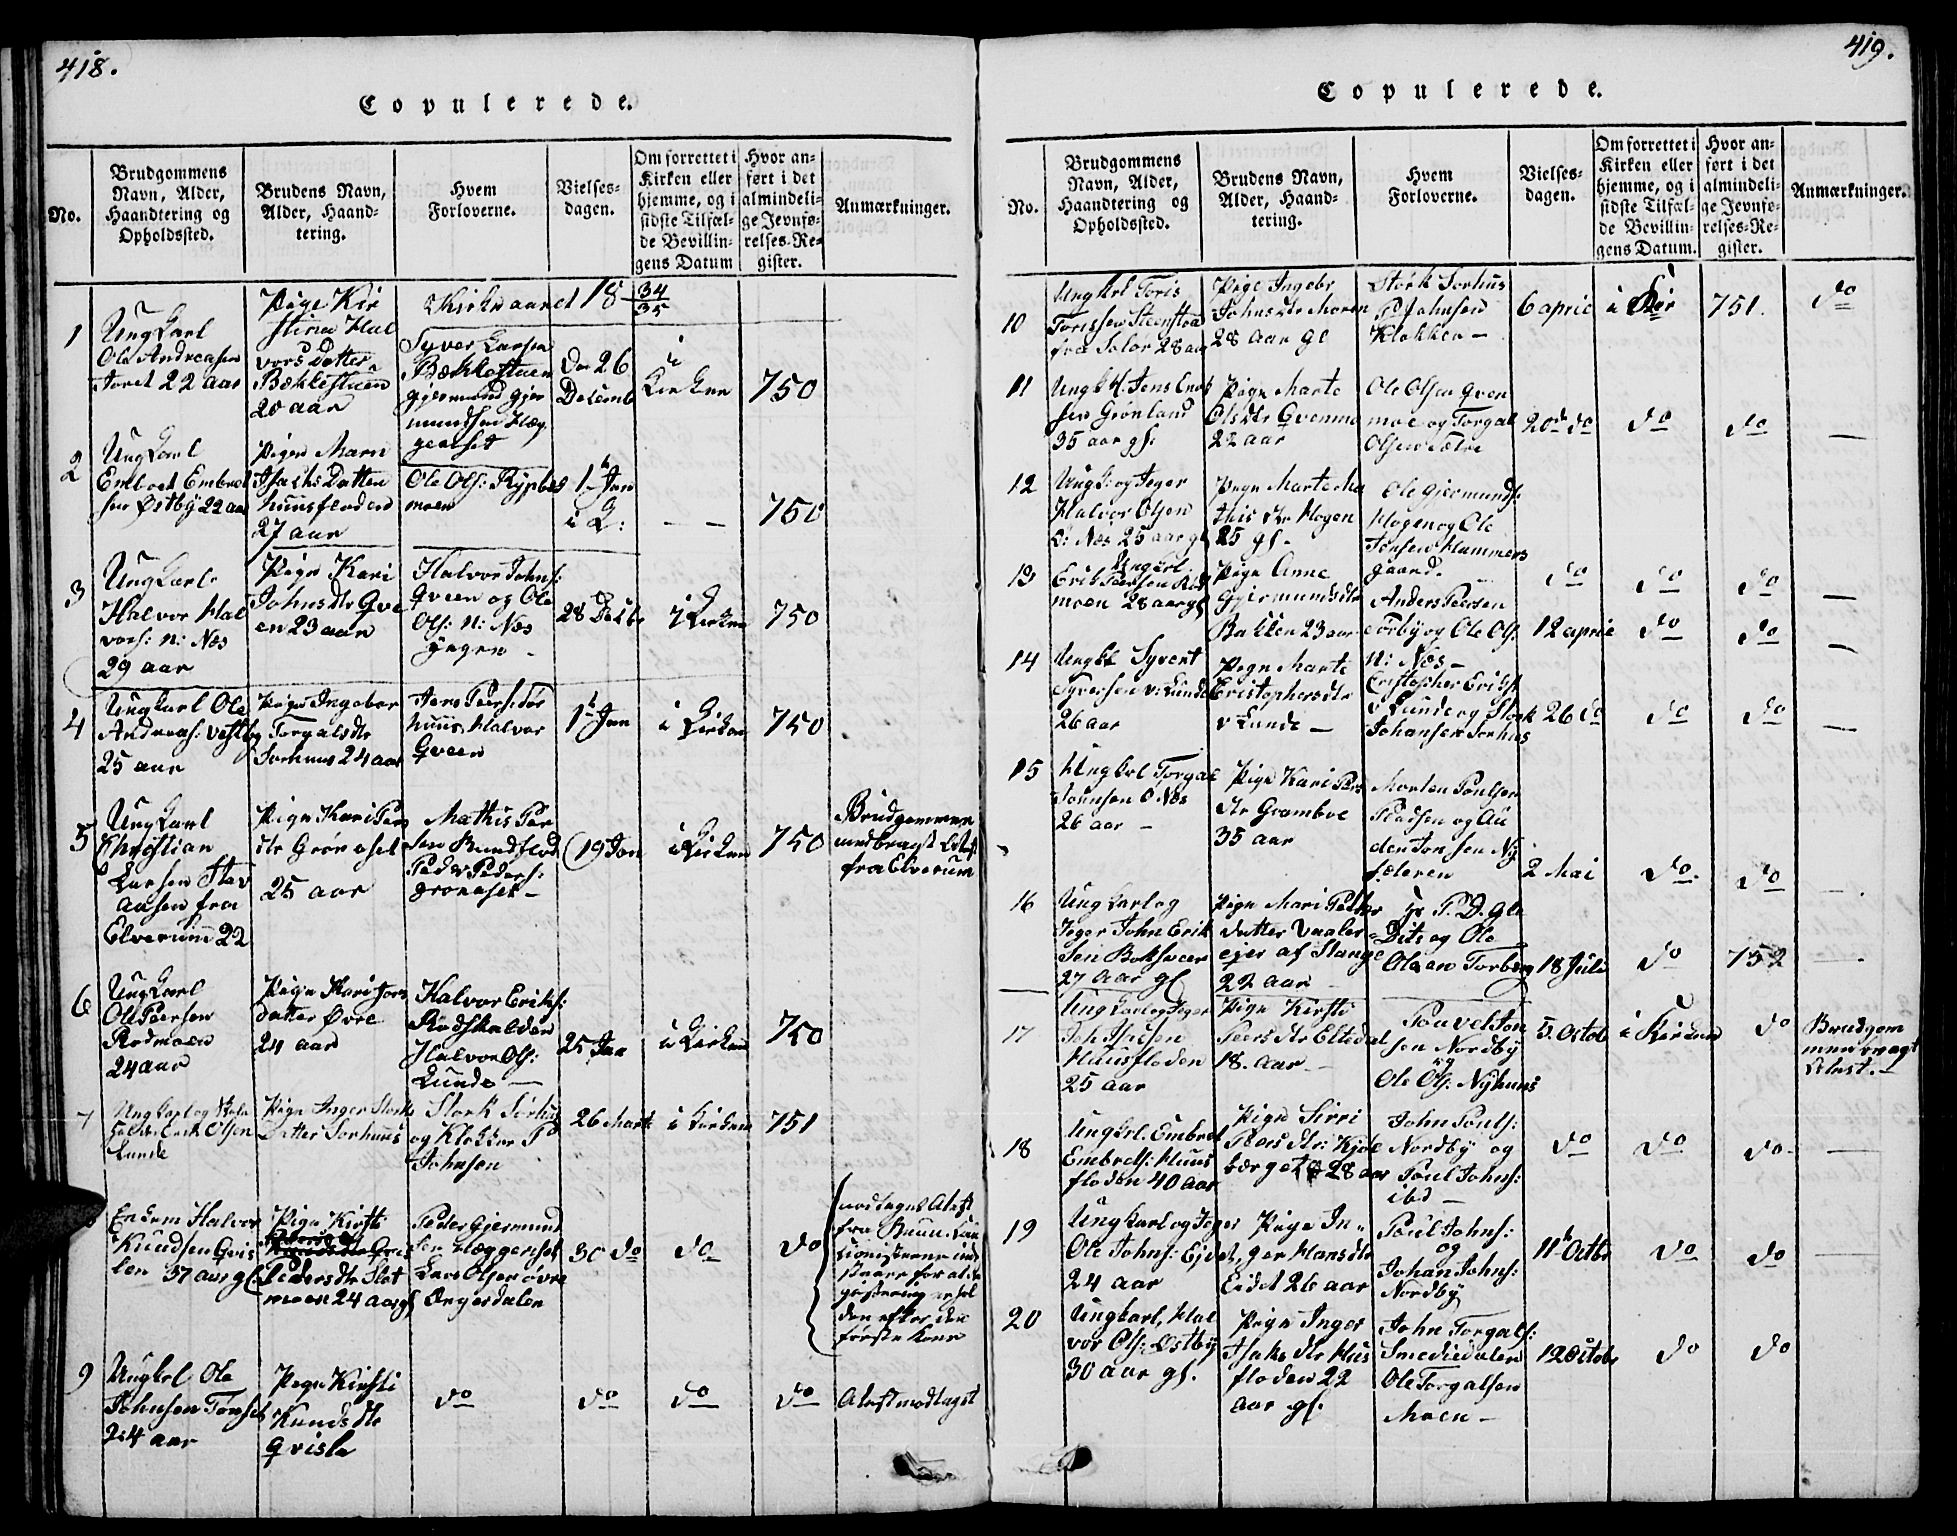 418.
Copulerede.
No.
Brudgommens
Navn, Alder,
Haandtering og
Opholdssted.
Brudens Navn,
Alder, Haand-
tering.
Hvem
Forloverne.
Vielses-
dagen.
Om forrettet i
Kirken eller
hjemme, og i
sidste Tilfæl-
de Bevillin-
gens Datum
Hvor an-
ført i det
almindeli-
ge Jevnfø-
relses-Re-
gister.
Anmærkninger.
Kirkeaaret 18 34/35
1
Ung Karl
Ole Andreasen
22 aar
Pige Kir
stine Hal
vors Datter
Bækkestuen
20 aar
Syver Larsen
Bækkestuen
Gjermund Gjer
mundsen Hæg
geaset
Den 26
Decemb
i
Kirken
750
2
Ung Karl
Embret Embret
sen Østby 22 aar
Pigen Mari
Isachs Datter
huusfloden
27 aar
Ole Ols: Rypbes
moen
1 Jan
i K:
— —
750
3
Ung Karl
Halvor Hal
vors: N: Næs
29 aar
Pigen Kari
Johnsdtr Qve
en 23 aar
Halvor Johns:
Qveen og Ole
Ols: N: Næs
28 Decbr
i Kirken
750
4
Ung Karl Ole
Andreas: Vestby
25 aar
Pigen Ingebor
Torgalsdtr
Sorhuus 24 aar
Jens Peers: Sør
huus, Halvor
Qveen
1 Jan
i Kirken
750
5
Ung Karl
Christian
Larsen Stav
aasen fra
Elverum 22
Pigen Kari Pers
dtr Grønoset
25 aar
Mathis Per
sen Rundflod
Peder Peders:
Grønoset —
19 Jan
i Kirken
750
Brudgommen
medbragt Lest
fra Elverum
6
Ung Karl
Ole Peersen
Rodmoen
24 aar
Pigen Kari Jors
datter Øvre
24 aar
Halvor Eriks:
Rodskalden
Halvor Ols:
Lunde —
25 Jan
i Kirken
750
7
Ung Karl og
Erik Olsen
Lunde
Pigen Inger Storks
Datter Sorhuus
Stork Sørhus
og Klokker P
Johnsen
26 Mart
i Kirken
751
Enkem Halvor
Knudsen Qvis
len 37 aar gl.
Pigen Kirsti
Pedersdtr Slet
moen 24 aar gl
Peder Gjermund
sen Hæggeriset
Lars Olsen øvre
Ængerdalen
30 do
do
do
modtaget Atest
fra
den efter den
første Kone
9
Ungkrl Ole
Johnsen Tønset
24 aar
Pigen Kirsti
Knudsdtr
Qvisle
do
do
do
do
Atest modtaget
419.
Copulerede.
No.
Brudgommens
Navn, Alder,
Haandtering og
Opholdssted.
Brudens Navn,
Alder, Haand-
tering.
Hvem
Forloverne.
Vielses-
dagen.
Om forrettet i
Kirken eller
hjemme, og i
sidste Tilfæl-
de Bevillin-
gens Datum.
Hvor an-
ført i det
almindeli-
ge Jevnfø-
relses-Re-
gister.
Anmærkninger.
10
Ungkrl Toris
Torissen Steensta
fra Solør 28 aar
Pige Ingebr
Johnsdtr Moren
28 aar gl
Stork Sorhuus
P Johnsen
Klokker —
6 april
i Kir
751.
do
11
Ungk. Jens Enok
sen Grønland
35 aar gl:
Pigen Marte
Olsdtr Qvenmo
22 aar
Ole Olsen Qven
moe og Torgal
Olsen Sætre
20 do
do
do
—
12
Ungk: og Jeger
Halvor Olsen
O: Næs 25 aar gl
Pigen Marte Ma
this dtr Hogen
25 gl.
Ole Gjermunds:
Hogen og Ole
Jonsen Hammers
gaard.
do
do
do
—
13
Ungkrl
Erik Peersen Rød
moen 28 aar gl
Pigen Anne
Gjermundsdtr
Bakken 23 aar
Anders Peersen
Sørby og Ole Ols:
N: Næs —
12 april
do
do
—
14
Ungkl Syvert
Syversen v: Lunde
26 aar
Pigen Marte
Cristophersdtr
v Lunde —
Cristopher Eriks:
v Lunde og Stork
Johansen Sorhus
26 do
do
do
—
15
Ungkrl Torgal
Jounsen O Næs
26 aar —
Pige Kari Pers
dtr Gramboe
35 aar
Morten Poulsen
Pladsen og Au
den Jonsen Ny
sæteren
2 Mai
do.
do
—
16
Ung Karl og
Jeger John Erik
sen Boksveen
27 aar gl
Pigen Mari Petter
datter Vaaler
ejer af Stange
22 aar
Hr P. D. Gle
Dits og Ole
Olsen Torberg
18 Juli
do
752
—
17
Ung Karl og Jeger
Huusfloden
25 aar
Pigen Kirsti
Peersdtr Eltedal
18. aar —
Pouvel Jon
sen Nordby
og
Ole Ols: Nyhuus
5. Octob
i Kirken
do
Brudgom
men vragt
Atest. —
18
Ungkrl. Embret
Embrets: Huus
floden 40 aar
Pigen Sirri
Peersdtr: Kjøl
berget 28 aar
John Pouls:
Nordby og
Poul Johns:
ibd —
do
do
do
—
19
Ung Karl og Jeger
Ole Johns: Ejdet
24 aar
Pige In-
ger Hansdtr
Eidet 26 aar
Poul Johns:
og
Johan Johns:
Nordby
11 Octbr
do
do
—
20
Ungkarl, Hal
vor Ols: Østby
30 aar gl.
Pigen Inger
Isaksdtr Hus
floden 22
aar gl.
John Torgals:
Smediedalen
Ole Torgalsen
Moen —
12 Octobr
do
do